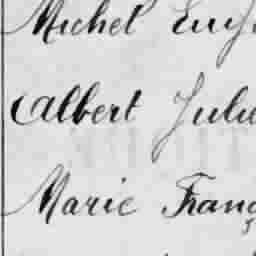 Michel Eug
Albert Jule
Marie Franç